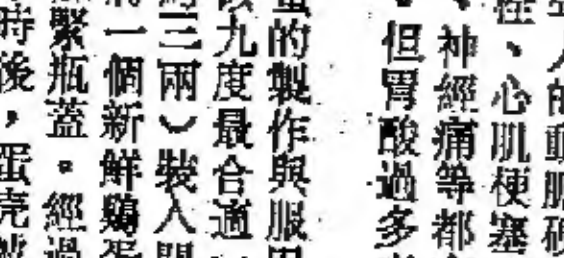 人的動脈硬
性、心肌梗塞
、神經痛等都
但胃酸過多
的製作與服用
九度最合適
三兩）裝入
一個新鮮鷄蛋
緊瓶蓋。經過
時後，蛋壳被